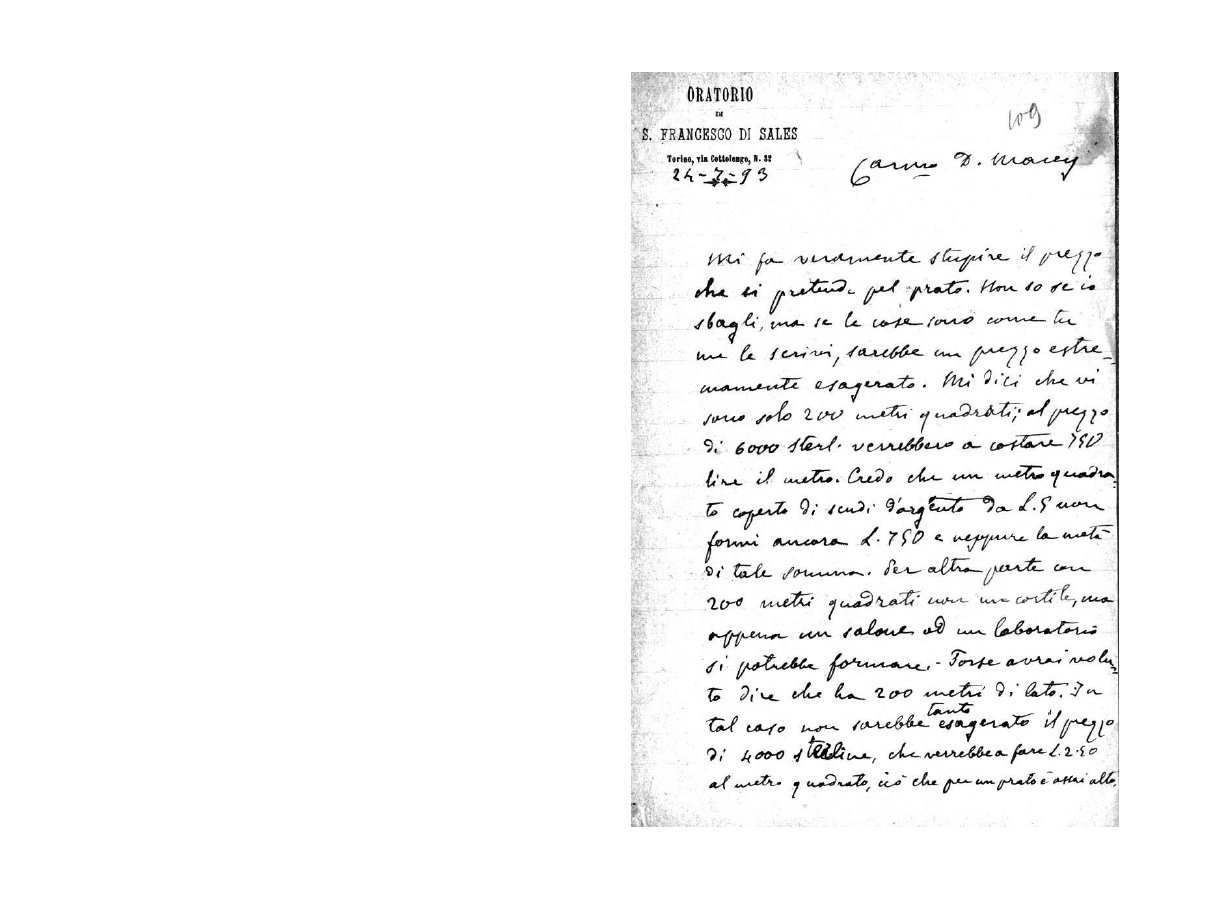 ORATORIO
DI
S. FRANCESCO DI SALES
Torino, via Cottolengo, N. 32
24-7-93
109
Carmo D. Macey
Mi fa veramente stupire il prezzo
che si pretende pel prato. Non so se io
sbagli, ma se le cose sono come tu
me le scrivi, sarebbe un prezzo estre-
mamente esagerato. Mi dici che vi
sono solo 200 metri quadrati; al prezzo
di 6000 sterl. verrebbero a costare 750
lire il metro. Credo che un metro quadra-
to coperto di scudi d'argento da L. 5 non
formi ancora L. 750 e neppure la metà
di tale somma. Per altra parte con
200 metri quadrati non un cortile, ma
appena un salone od un laboratorio
si potrebbe formare. - Forse avrai volu-
to dire che ha 200 metri di lato. In
tal caso non sarebbe tanto esagerato il prezzo
di 4000 sterline, che verrebbe a fare L. 2.50
al metro quadrato, ciò che per un prato è assai alto.